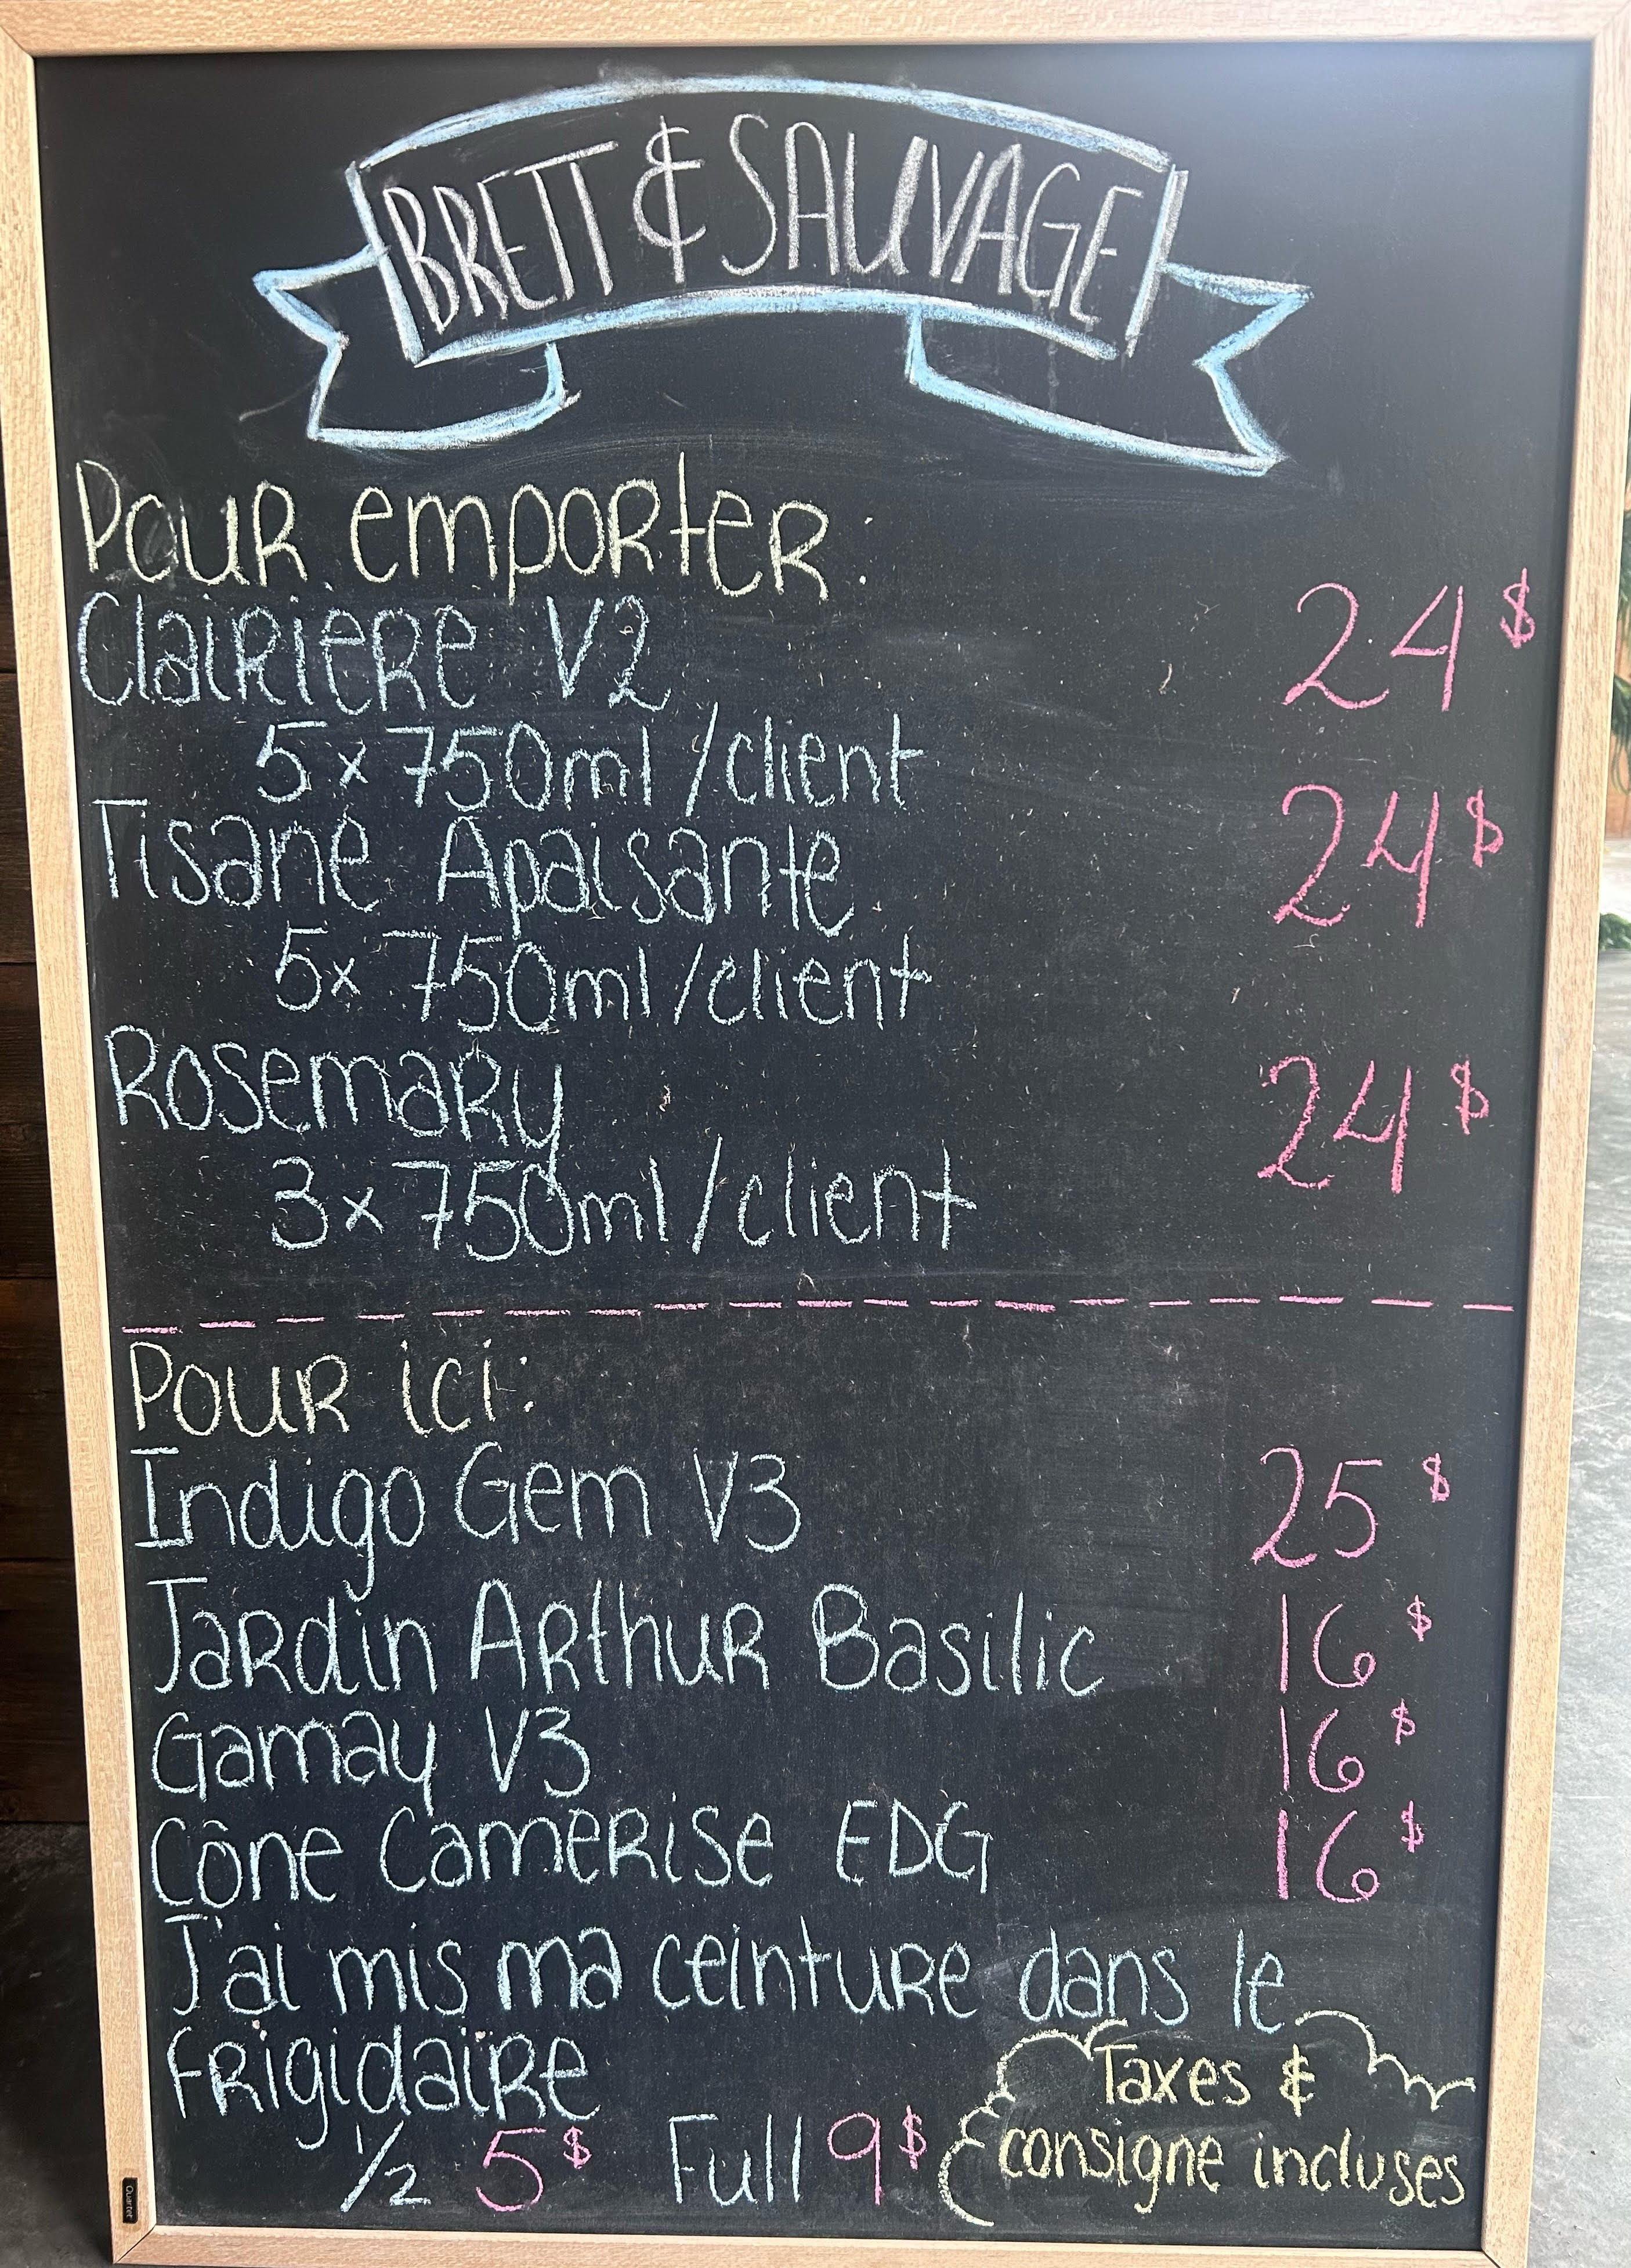 BRETT & SAUVAGE
Pour emporter:
Clairière V2 24$
5 x 750ml /client
Tisane Apaisante 24$
5x 750ml/client
Rosemary 24$
3x 750ml/client
Pour ici:
Indigo Gem V3 25$
Jardin Arthur Basilic 16$
Gamay V3 16$
Cône Camerise EDG 16$
J'ai mis ma ceinture dans le
frigidaire
1/2 5$ Full 9$
Taxes &
consigne incluses
Quartet